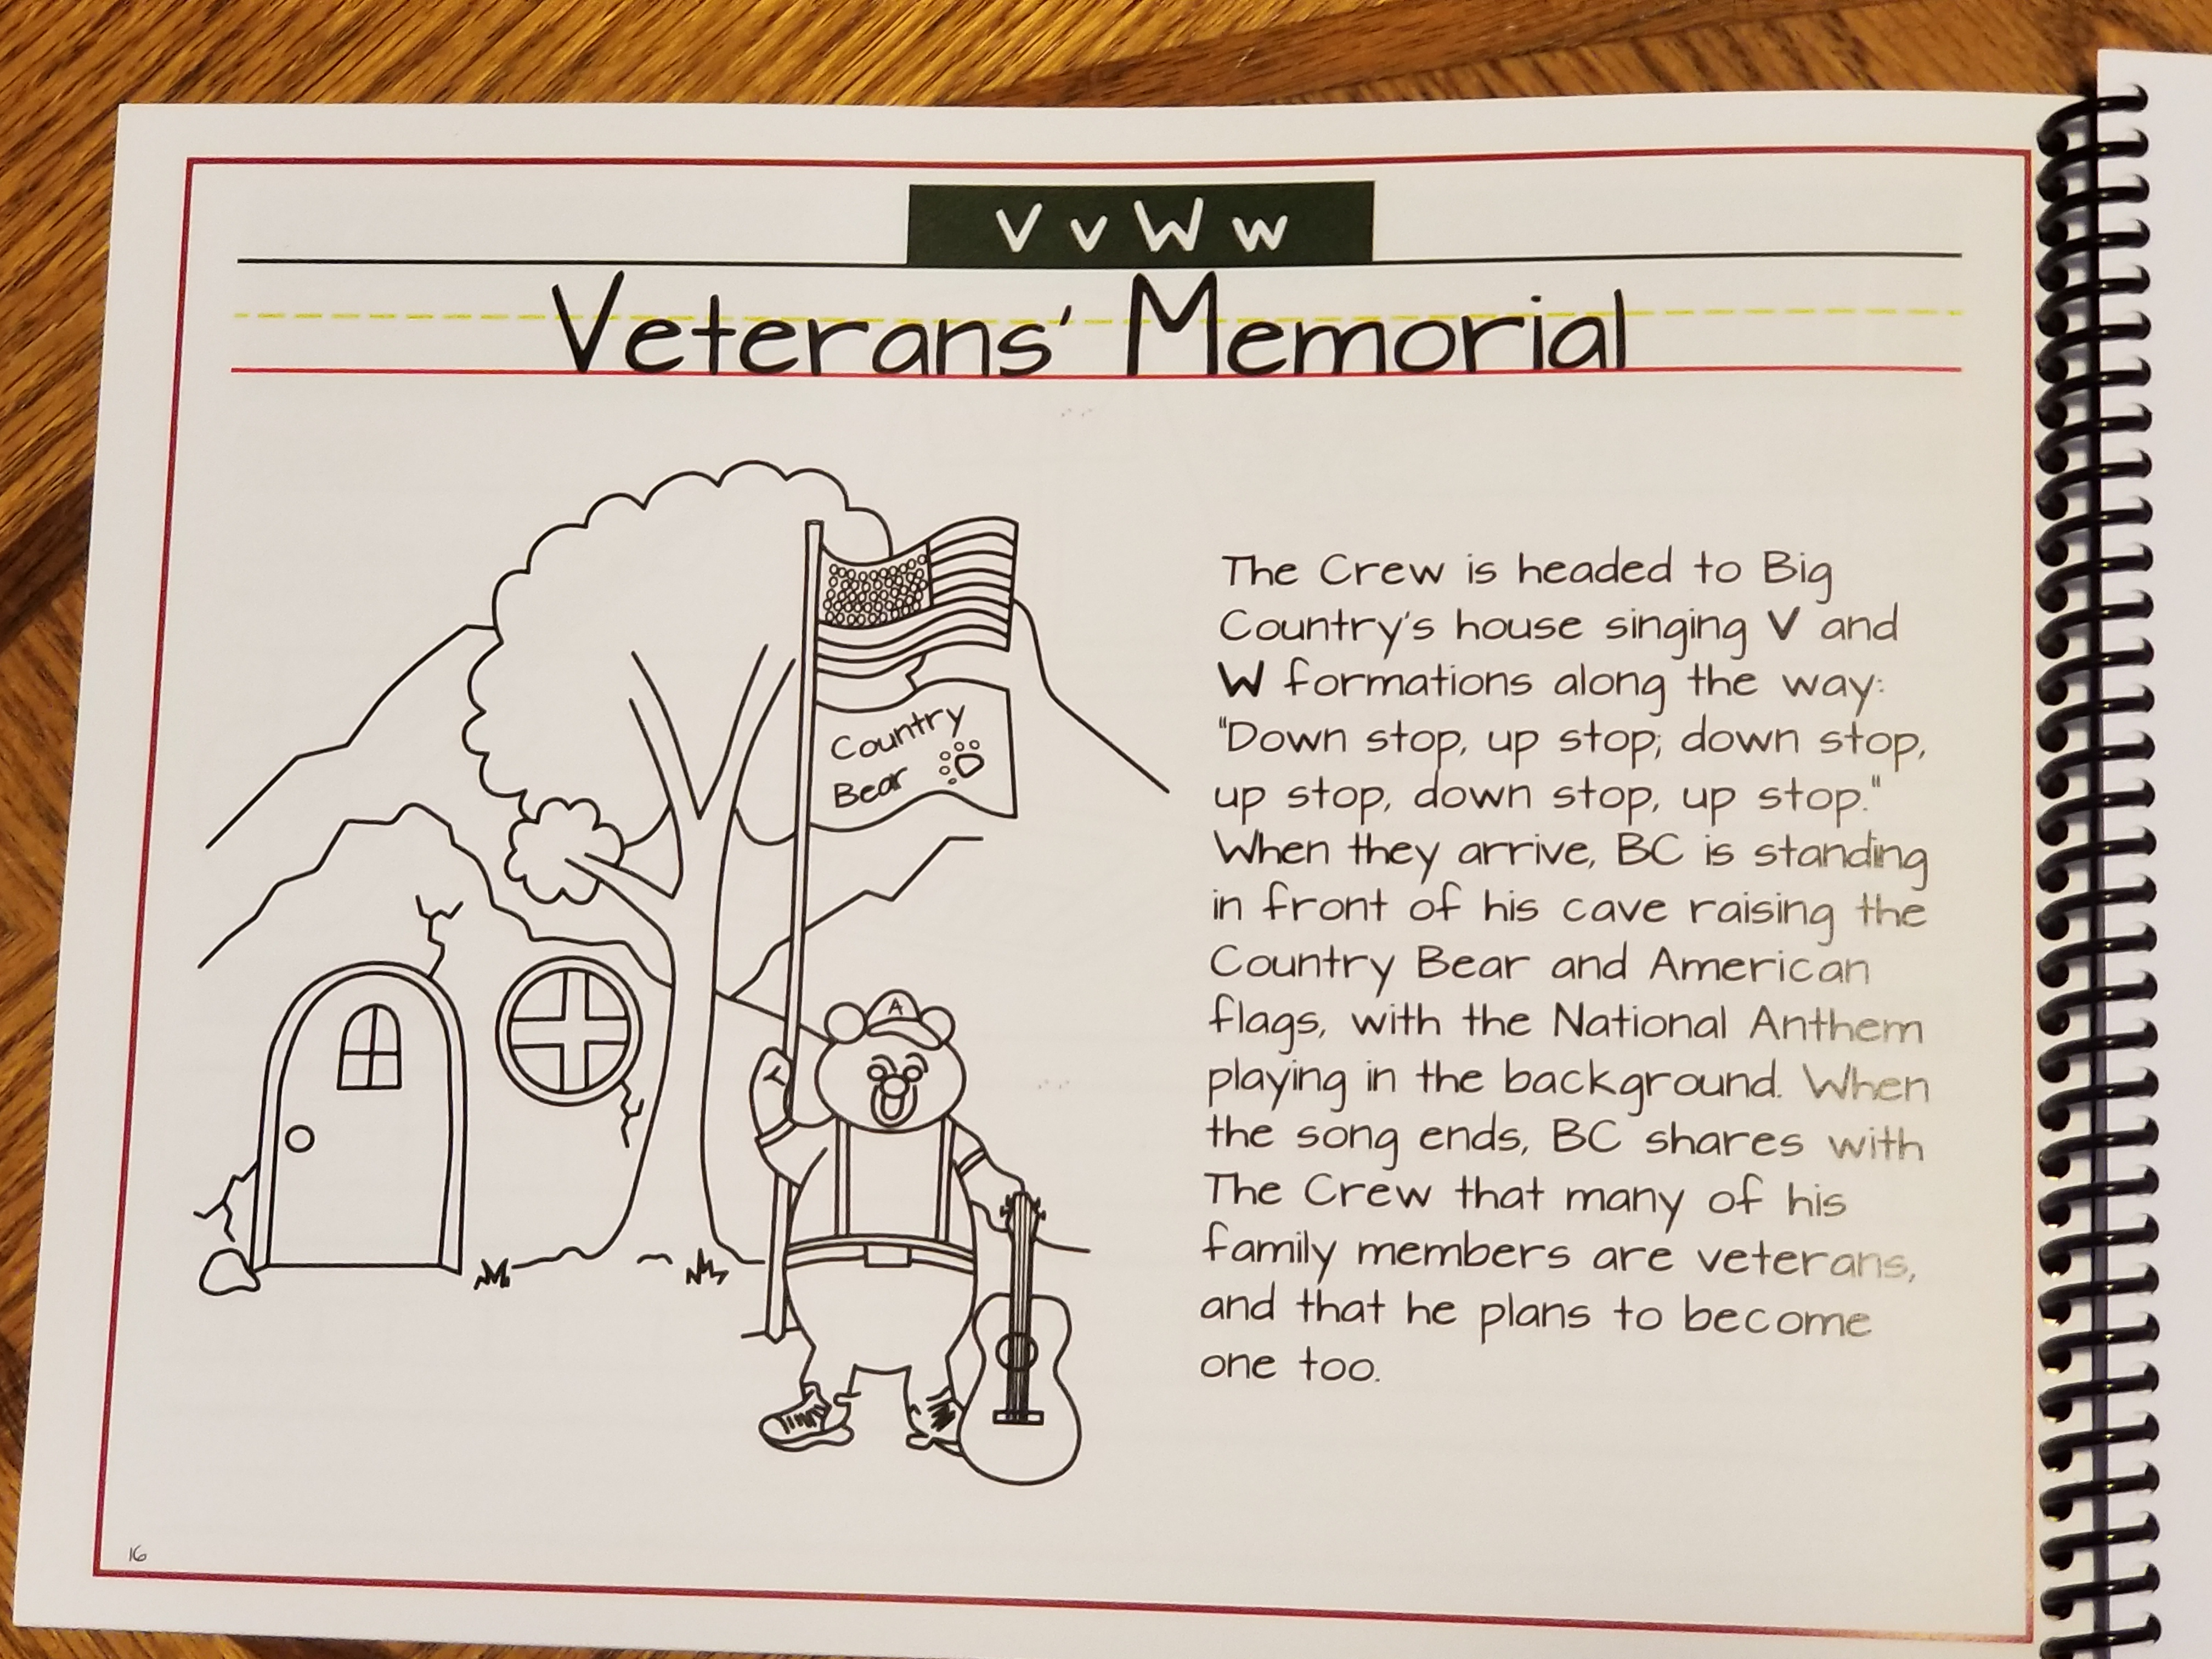 V v W w
Veterans' Memorial
Country
Bear
A
The Crew is headed to Big
Country's house singing V and
W formations along the way:
"Down stop, up stop; down stop,
up stop, down stop, up stop."
When they arrive, BC is standing
in front of his cave raising the
Country Bear and American
flags, with the National Anthem
playing in the background. When
the song ends, BC shares with
The Crew that many of his
family members are veterans,
and that he plans to become
one too.
16